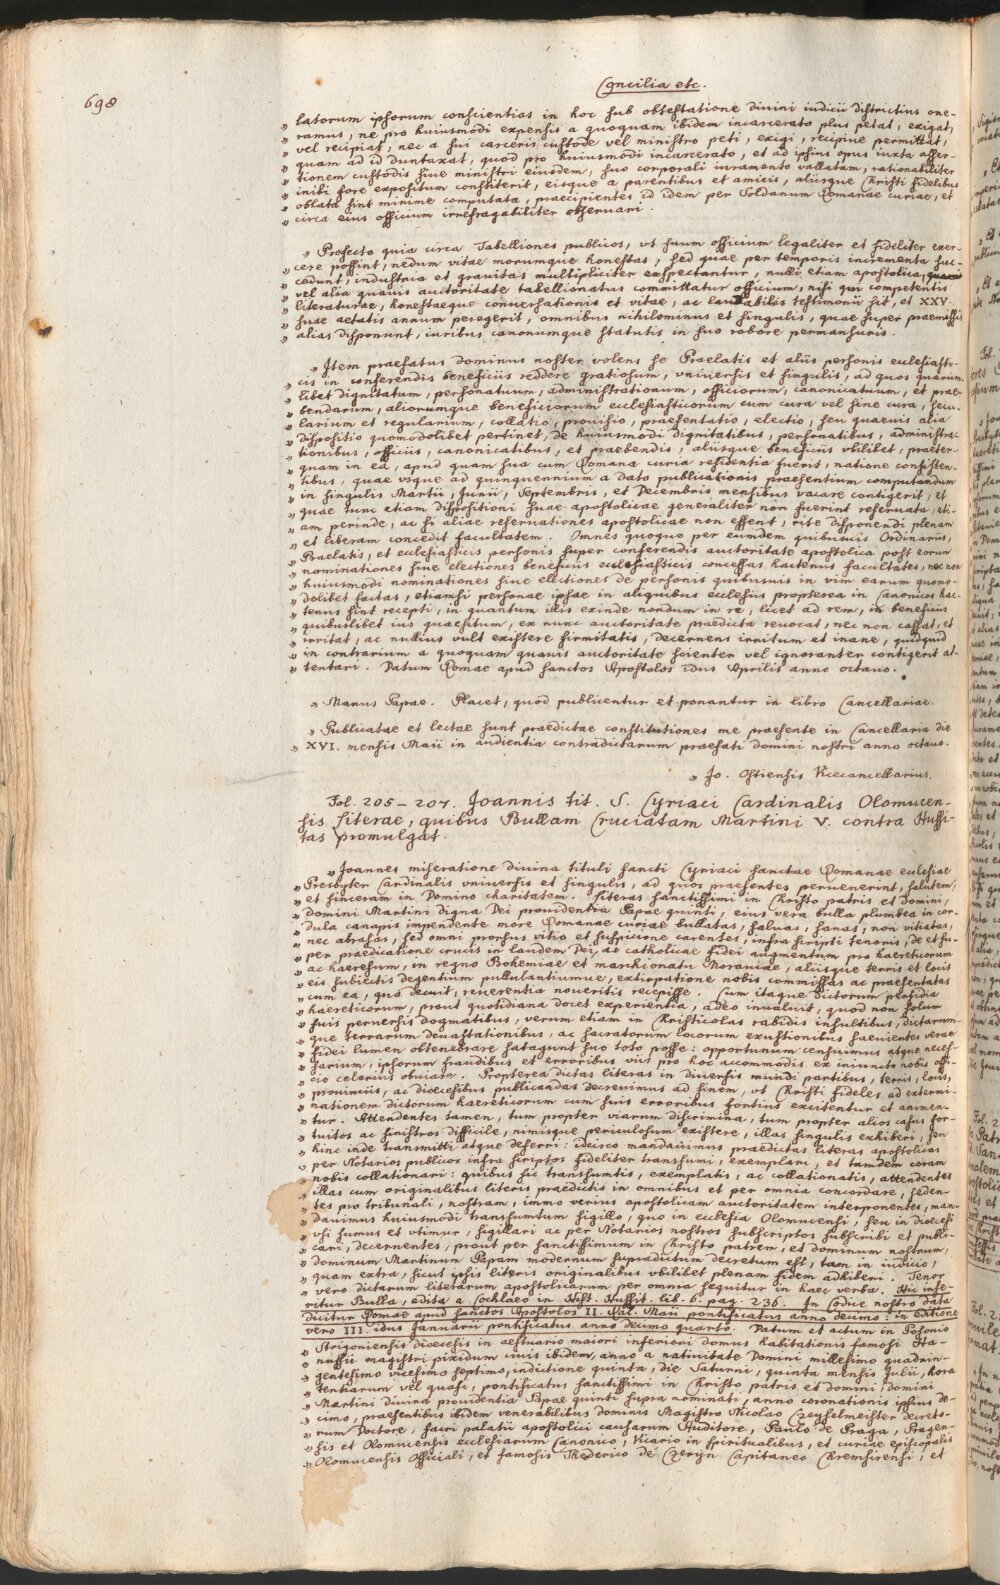 698
Concilia etc.
" latorum ipsorum conscientias in hoc sub obtestatione divini iudicii districtius one-
" ramus, ne pro huiusmodi expensis a quoquam ibidem incarcerato plus petat, exigat,
" vel recipiat, nec a sui carceris custode vel ministro peti, exigi, recipiue permittat,
" quam ad id duntaxat, quod pro huiusmodi incarcerato, et ad ipsius opus iuxta asser-
" tionem custodis siue ministri eiusdem, suo corporali iuramento vallatam, rationabiliter
" inibi fore expositum constiterit, eisque a parentibus et amicis, aliisque Christi fidelibus
" oblata sint minime computata, praecipientes id idem per Soldanum Romanae curiae, et
" circa eius officium irrefragabiliter obseruari.
" Profecto quia circa Tabelliones publicos, vt suum officium legaliter et fideliter exer-
" cere possint, nedum vitae morumque honestas, sed quae per temporis incrementa suc-
" cedunt, industria et grauitas multipliciter exspectantur, nulli etiam apostolica,
" vel alia quauis auctoritate tabellionatus committatur officium, nisi qui competentis
" literaturae, honestaeque conuersationis et vitae, ac laudabilis testimonii sit, et XXV.
" suae aetatis annum peregerit, omnibus nihilominus et singulis, quae super praemissis
" alias disponunt, iuribus, canonumque statutis in suo robore permansuris.
" Item praefatus dominus noster, volens se Praelatis et aliis personis ecclesiasti-
" cis in conferendis beneficiis reddere gratiosum, vniuersis et singulis, ad quos quarum-
" libet dignitatum, personatuum, administrationum, officiorum, canonicatuum, et prae-
" bendarum, aliorumque beneficiorum ecclesiasticorum cum cura vel sine cura, secu-
" larium et regularium, collatio, prouisio, praesentatio, electio, seu quaeuis alia
" dispositio quomodolibet pertinet, de huiusmodi dignitatibus, personatibus, administra-
" tionibus, officiis, canonicatibus, et praebendis, aliisque beneficiis vbilibet, praeter-
" quam in ea, apud quam sua cum Romana curia residentia fuerit, natione consisten-
" tibus, quae vsque ad quinquennium a dato publicationis praesentium computandum
" in singulis Martii, Junii, Septembris, et Decembris mensibus vacare contigerit, et
" quae tunc etiam dispositioni suae apostolicae generaliter non fuerint reseruata, eti-
" am perinde, ac si aliae reseruationes apostolicae non essent, rite disponendi plenam
" et liberam concedit facultatem. Omnes quoque per eumdem quibusuis Ordinariis,
" Praelatis, et ecclesiasticis personis super conferendis auctoritate apostolica post eorum
" nominationes siue electiones beneficiis ecclesiasticis concessas hactenus facultates, nec non
" huiusmodi nominationes siue electiones de personis quibusuis in vim earum quomo-
" dolibet factas, etiamsi personae ipsae in aliquibus ecclesiis propterea in Canonicos hac-
" tenus sint recepti, in quantum illis exinde nondum in re, licet ad rem, in beneficiis
" quibuslibet ius quaesitum, ex nunc auctoritate praedicta reuocat, nec non cassat, et
" irritat, ac nullius vult existere firmitatis, decernens irritum et inane, quidquid
" in contrarium a quoquam quauis auctoritate scienter vel ignoranter contigerit at-
" tentari. Datum Romae apud sanctos Apostolos idus Aprilis anno octauo.
" Manus Papae. Placet, quod publicentur et ponantur in libro Cancellariae.
" Publicatae et lectae sunt praedictae constitutiones me praesente in Cancellaria die
" XVI. mensis Maii in audientia contradictarum praefati domini nostri anno octauo.
" Jo. Ostiensis Vicecancellarius.
Fol. 205-207. Joannis tit. S. Cyriaci Cardinalis Olomucen-
sis literae, quibus Bullam Cruciatam Martini V. contra Hussi-
tas promulgat.
" Joannes miseratione diuina tituli sancti Cyriaci sanctae Romanae ecclesiae
" Presbyter Cardinalis vniuersis et singulis, ad quos praesentes peruenerint, salutem,
" et sinceram in Domino charitatem. Literas sanctissimi in Christo patris et domini,
" domini Martini digna Dei prouidentia Papae quinti, eius vera bulla plumbea in cor-
" dula canapis impendente more Romanae curiae bullatas, saluas, sanas, non vitiatas,
" nec abrasas, sed omni prorsus vitio et suspicione carentes, infra scripti tenoris, de et su-
" per praedicatione crucis in laudem Dei, ac catholicae fidei augmentum pro haereticorum
" ac haeresum, in regno Bohemiae et marchionatu Morauiae, aliisque terris et locis
" eis subiectis degentium pullulantiumue, exstirpatione nobis commissas ac praesentatas
" cum ea, qua decuit, reuerentia noueritis recepisse. Cum itaque dictorum perfidia
" haereticorum, prout quotidiana docet experientia, adeo inualuit, quod non solum
" suis peruersis dogmatibus, verum etiam in Christicolas rabidis insultibus, dictarum-
" que terrarum deuastationibus, ac sacratorum locorum exustionibus saeuientes verae
" fidei lumen obtenebrare satagunt suo toto posse: opportunum censuimus atque neces-
" sarium, ipsorum fraudibus et erroribus viis pro hoc accommodis ex iniuncto nobis offi-
" cio celerius obuiare. Propterea dictas literas in diuersis mundi partibus, terris, locis,
" prouinciis, ac dioecesibus publicandas decreuimus ad finem, vt Christi fideles ad extermi-
" nationem dictorum haereticorum cum suis erroribus fortius excitentur et animen-
" tur. Attendentes tamen, tum propter viarum discrimina, tum propter alios casus for-
" tuitos ac sinistros difficile, nimisque periculosum existere, illas singulis exhiberi, seu
" hinc inde transmitti atque deferri: idcirco mandauimus praedictas literas apostolicas
" per Notarios publicos infra scriptos fideliter transsumi, exemplari, et tandem coram
" nobis collationari: quibus sic transsumtis, exemplatis, ac collationatis, attendentes
" illas cum originalibus literis praedictis in omnibus et per omnia concordare, seden-
" tes pro tribunali, nostram, immo verius apostolicam auctoritatem interponentes, man-
" dauimus huiusmodi transsumtum sigillo, quo in ecclesia Olomucensi, seu in dioecesi
" vsi sumus et vtimur, sigillari ac per Notarios nostros subscriptos subscribi et publi-
" cari, decernentes, prout per sanctissimum in Christo patrem, et dominum nostrum,
" dominum Martinum Papam modernum supradictum decretum est, tam in iudicio,
" quam extra, sicut ipsis literis originalibus vbilibet plenam fidem adhiberi. Tenor
" vero dictarum literarum apostolicarum per omnia sequitur in haec verba. Hic inse-
ritur Bulla, edita a Cochlaeo in Hist. Hussit. lib. 6. pag. 236. In Codice nostro data
dicitur Romae apud sanctos Apostolos II. Kal. Maii pontificatus anno decimo: in editione
vero III. idus Januarii pontificatus anno decimo quarto. Datum et actum in Posonio
" Strigoniensis dioecesis in aestuario maiori inferiori domus habitationis famosi Sta-
" nussii magistri pixidum ciuis ibidem, anno a natiuitate Domini millesimo quadrin-
" gentesimo vicesimo septimo, indictione quinta, die Saturni, quinta mensis Julii, hora
" tertiarum vel quasi, pontificatus sanctissimi in Christo patris et domini, domini
" Martini diuina prouidentia Papae quinti supra nominati, anno coronationis ipsius de-
" cimo, praesentibus ibidem venerabilibus dominis Magistro Nicolao Czeyselmeister decreto-
" rum Doctore, sacri palatii apostolici causarum Auditore, Paulo de Praga, Pragen-
" sis et Olomucensis ecclesiarum Canonico, Vicario in spiritualibus, et curiae episcopalis
" Olomucensis Officiali, et famosis Thederico de Czeryn Capitaneo Chremsirensi, et